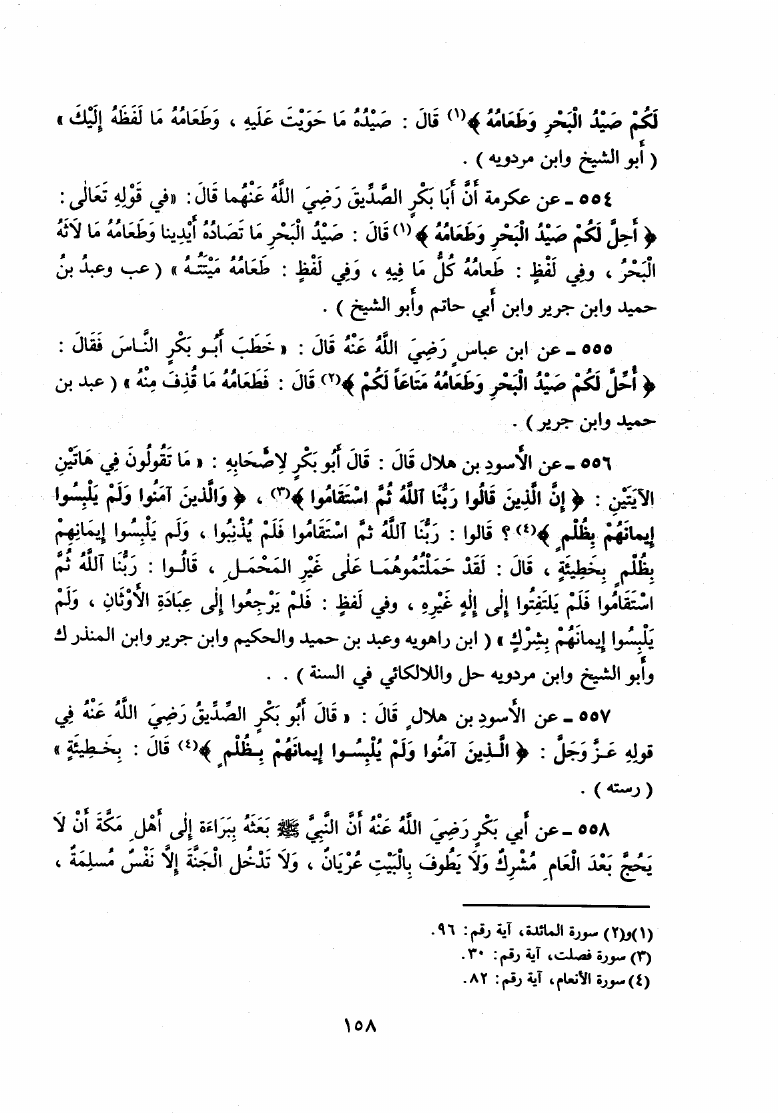 لَكُمْ صَيْدُ الْبَحْرِ وَطَعَامُهُ ﴾(١) قَالَ : صَيْدُهُ مَا حَوَيْتَ عَلَيهِ ، وَطَعَامُهُ مَا لَفَظَهُ إِلَيْكَ »
( أبو الشيخ وابن مردويه ) .
٥٥٤ ـ عن عكرمة أَنَّ أَبَا بَكْرٍ الصِّدِّيقَ رَضِيَ اللَّهُ عَنْهُما قَالَ : «في قَوْلِهِ تَعَالٰى :
﴿ أُحِلَّ لَكُمْ صَيْدُ الْبَحْرِ وَطَعَامُهُ ﴾(١) قَالَ : صَيْدُ الْبَحْرِ مَا تَصَادُهُ أَيْدِينا وَطَعَامُهُ مَا لَاثَهُ
الْبَحْرُ ، وفِي لَفْظٍ : طَعامُهُ كُلُّ مَا فِيهِ ، وَفِي لَفْظٍ : طَعَامُهُ مَيْتَتُهُ » ( عب وعبدُ بنُ
حميد وابن جرير وابن أبي حاتم وأبو الشيخ ) .
٥٥٥ ـ عن ابن عباسٍ رَضِيَ اللَّهُ عَنْهُ قَالَ : « خَطَبَ أَبُو بَكْرٍ النَّاسَ فَقَالَ :
﴿ أُحَلَّ لَكُمْ صَيْدُ الْبَحْرِ وَطَعَامُهُ مَتَاعَاً لَكُمْ ﴾(٢) قَالَ : فَطَعَامُهُ مَا قُذِفَ مِنْهُ » ( عبد بن
حميد وابن جرير ) .
٥٥٦ ـ عن الأَسودِ بن هلال قَالَ : قَالَ أَبُو بَكْرٍ لِأَصْحَابِهِ : « مَا تَقُولُونَ فِي هَاتَيْنِ
الآيَتَيْنِ : ﴿ إِنَّ الَّذِينَ قَالُوا رَبُّنَا اللَّهُ ثُمَّ اسْتَقَامُوا ﴾(٣) ، ﴿ وَالَّذِينَ آمَنُوا وَلَمْ يَلْبِسُوا
إِيمَانَهُمْ بِظُلْمٍ ﴾(٤) ؟ قالوا : رَبُّنَا اللَّهُ ثمَّ اسْتَقَامُوا فَلَمْ يُذْنِبُوا ، وَلَم يَلْبِسُوا إِيمَانِهِمْ
بِظُلْمٍ بِخَطِيئَةٍ ، قَالَ : لَقَدْ حَمَلْتُمُوهُمَا عَلٰى غَيْرِ المَحْمَلِ ، قَالُوا : رَبُّنَا اللَّهُ ثُمَّ
اسْتَقَامُوا فَلَمْ يَلتَفِتُوا إِلى إِلٰهٍ غَيْرِهِ ، وفي لَفظٍ : فَلَمْ يَرْجِعُوا إِلٰى عِبَادَةِ الأَوْثَانِ ، وَلَمْ
يَلْبِسُوا إِيمَانَهُمْ بِشِرْكٍ » ( ابن راهويه وعبد بن حميد والحكيم وابن جرير وابن المنذر ك
وأبو الشيخ وابن مردويه حل واللالكائي في السنة ) . .
٥٥٧ ـ عن الأسودِ بن هلالٍ قَالَ : « قَالَ أَبُو بَكْرٍ الصِّدِّيقُ رَضِيَ اللَّهُ عَنْهُ فِي
قولِهِ عَزَّ وَجَلَّ : ﴿ الَّذِينَ آمَنُوا وَلَمْ يُلْبِسُوا إِيمَانَهُمْ بِظُلْمٍ ﴾(٤) قَالَ : بِخَطِيئَةٍ »
( رسته ) .
٥٥٨ ـ عن أَبي بَكْرٍ رَضِيَ اللَّهُ عَنْهُ أَنَّ النَّبِيَّ ﷺ بَعَثَهُ بِبَرَاءَة إِلٰى أَهْلِ مَكَّةَ أَنْ لَا
يَحُجَّ بَعْدَ الْعَامِ مُشْرِكٌ وَلَا يَطُوفَ بِالْبَيْتِ عُرْيَانٌ ، وَلَا تَدْخُل الْجَنَّةَ إِلَّا نَفْسٌ مُسلِمَةٌ ،
(١)و(٢) سورة المائدة، آية رقم: ٩٦.
(٣) سورة فصلت، آية رقم: ٣٠.
(٤) سورة الأنعام، آية رقم: ٨٢.
١٥٨